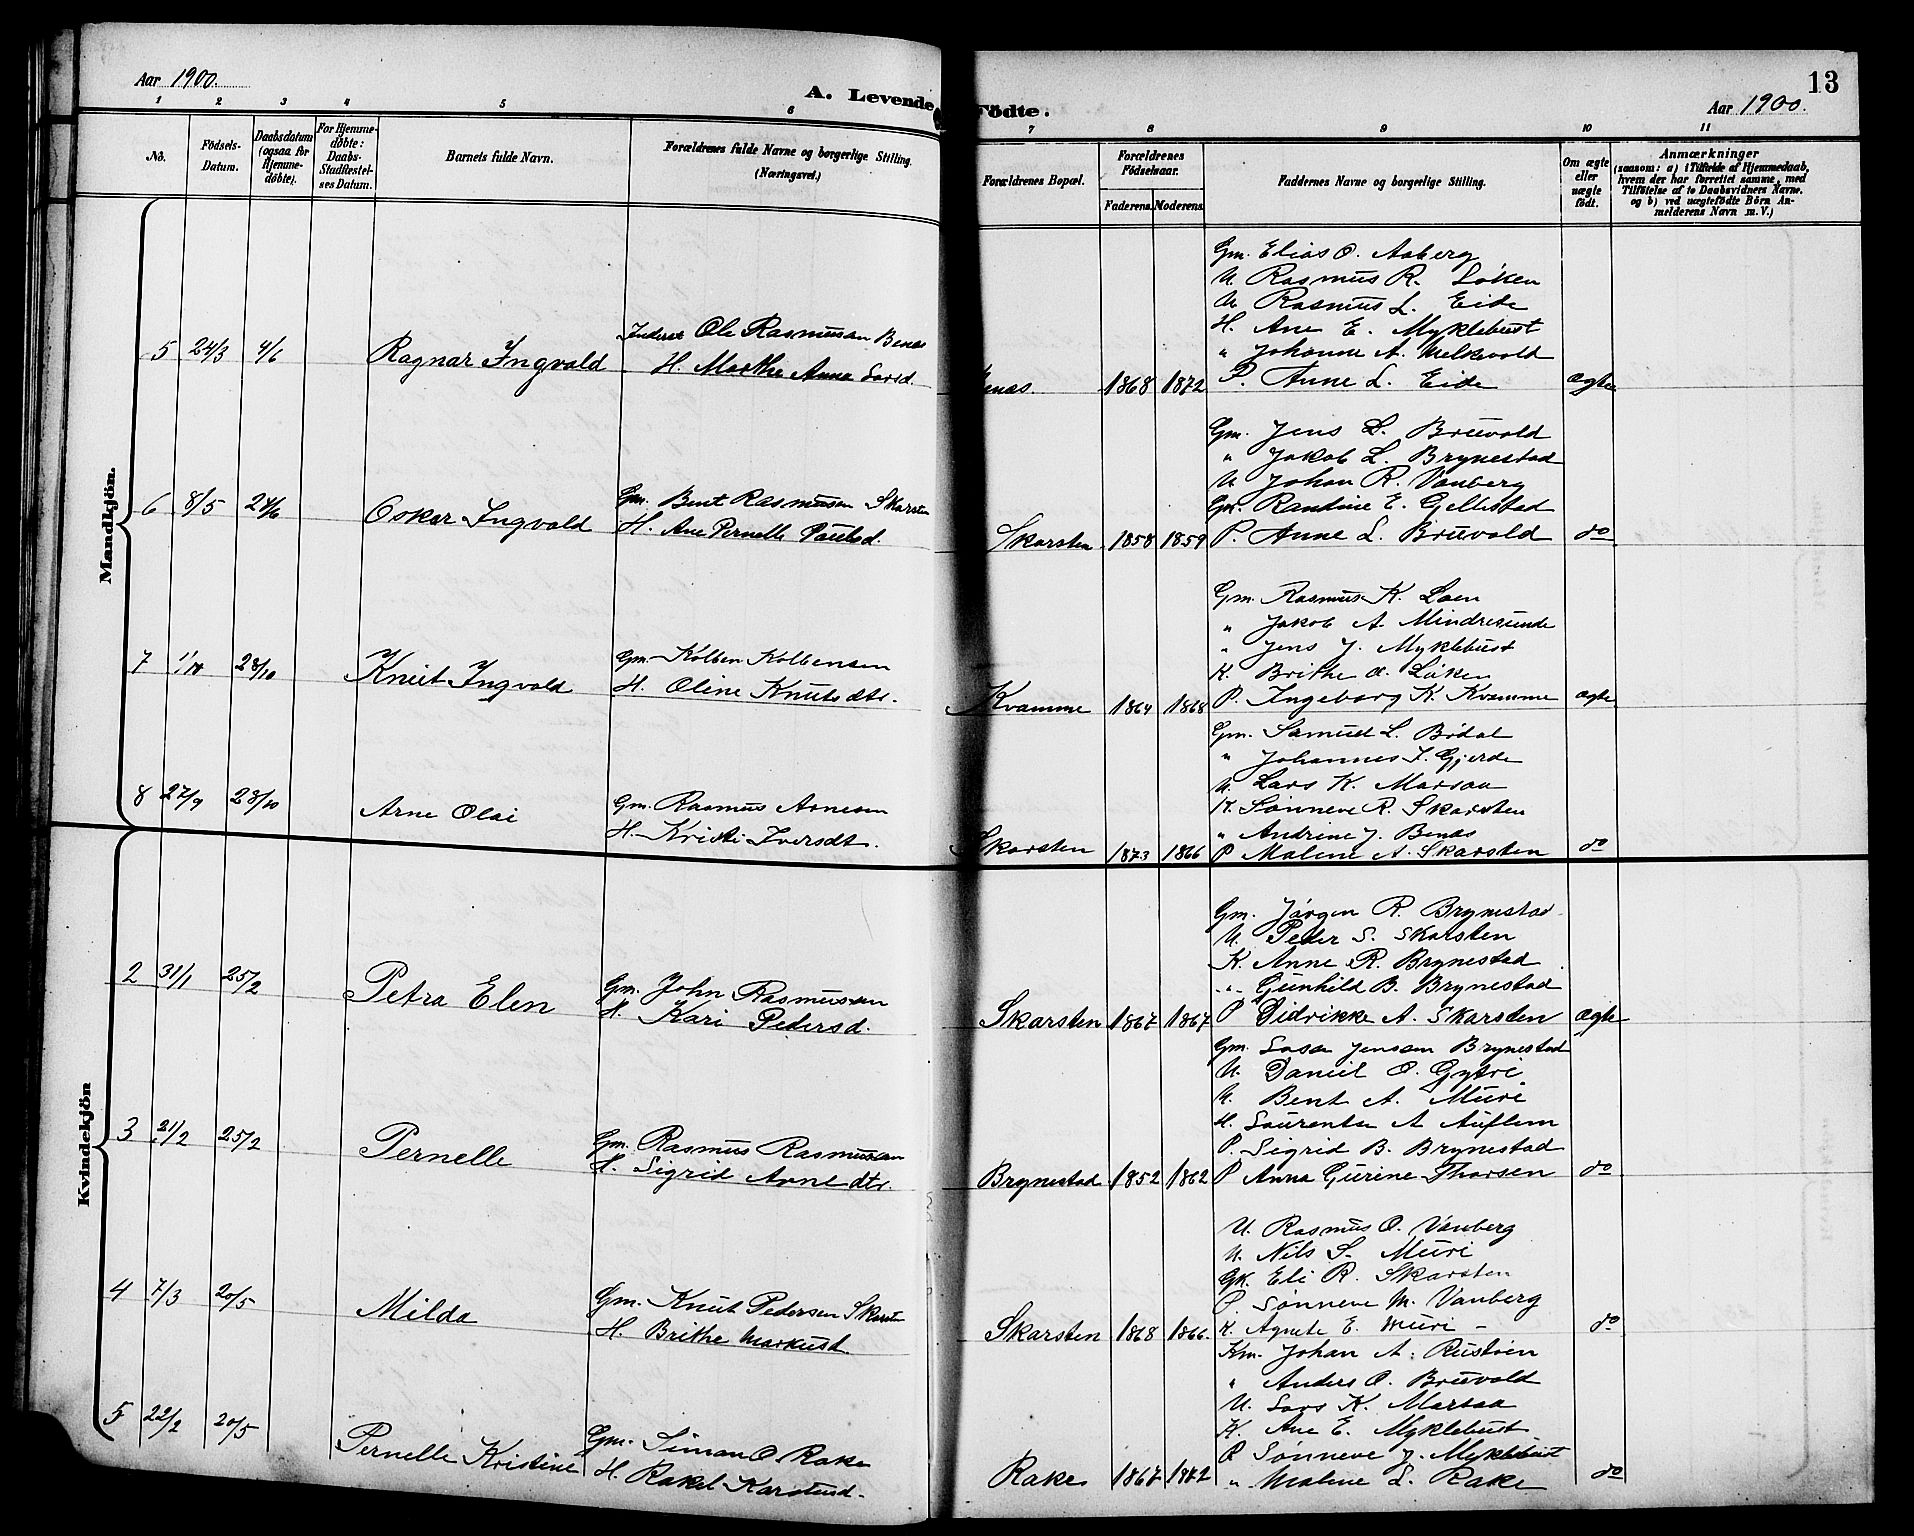 Aar 1900.
A. Levende
1 2 3 4 5 6
No.
Födsels-Datum.
Daabsdatum (ogsaa for Hjemme-døbte).
For Hjemme-døbte: Daabs-Stadfæstel-ses Datum.
Barnets fulde Navn.
Forældrenes fulde Navne og borgerlige Stilling. (Næringsvei.)
Födte.
Aar 1900.
13
7 8 9 10 11
Forældrenes Bopæl.
Forældrenes Fødselsaar.
Faderens. Moderens.
Faddernes Navne og borgerlige Stilling.
Om ægte eller uægte født.
Anmærkninger
(saasom: a) i Tilfælde af Hjemmedaab,
hvem der har forrettet samme, med
Tilføielse af to Daabsvidners Navne.
og b) ved uægtefødte Börn An-
melderens Navn m. V.)
Mandkjön.
5 24/3 4/6 Ragnar Ingvald
Inderst Ole Rasmussen Benæs
H. Marthe Anne Larsd.
Benæs. 1868 1872
Gm. Elias O. Aaberg
U. Rasmus R. Løken
U. Rasmus L. Eide
H. Ane E. Myklebust
" Johanne A. Melkevold
P. Anne L. Eide ægte
6 8/5 24/6 Oskar Ingvald
Gm. Bent Rasmusen Skarsten
H. Ane Pernelle Paulsd.
Skarsten 1858 1859
Gm. Jens L. Bruvold
" Jakob L. Brynestad
U. Johan R. Vanberg
Gk. Randine E. Gellestad
P. Anne L. Bruvold do
7 1/10 28/10 Knut Ingvald
Gm. Kolben Kolbensen
H. Oline Knutsdtr.
Kvamme 1864 1868
Gm. Rasmus K. Loen
" Jakob A. Mindresunde
" Jens J. Myklebust
K. Brithe A. Løken
P. Ingeborg K. Kvamme ægte
8 27/9 28/10 Arne Olai
Gm. Rasmus Arnesen
H. Kristi Iversdt.
Skarsten 1873 1866
Gm. Samuel L. Bødal
" Johannes I. Gjerde
U. Lars K. Marsaa
K. Sønneve R. Skarsten
" Andrine J. Benæs
P. Malene A. Skarsten do
Kvindekjön
2 31/1 25/2 Petra Elen
Gm. John Rasmussen
H. Kari Pedersd.
Skarsten 1867 1867
Gm. Jørgen R. Brynestad
U. Peder S. Skarsten
K. Anne R. Brynestad
" Gunhild B. Brynestad
P. Didrikke A. Skarsten ægte
3 21/2 25/2 Pernelle
Gm. Rasmus Rasmussen
H. Sigrid Arnedtr.
Brynestad 1852 1862
Gm. Lasse Jensen Brynestad
U. Daniel O. Gytri
U. Bent A. Muri
H. Laurentse A. Auflem
P. Sigrid B. Brynestad
P. Anna Gurine Thorsen do
4 7/3 20/5 Milda
Gm. Knut Pedersen Skarsten
H. Brithe Markusd.
Skarsten 1868 1866.
U. Rasmus O. Vanberg
U. Nils S. Muri
Gk. Eli R. Skarsten
P. Sønneve M. Vanberg
K. Agnete E. Muri – do
5 22/2 20/5 Pernelle Kristine
Gm. Simon O. Rake
H. Rakel Karstensd.
Rake 1867 1872
Km. Johan A. Rustøen
" Anders O. Bruvold
U. Lars K. Marsaa
K. Ane E. Myklebust
P. Sønneve J. Myklebust
" Malene L. Rake do